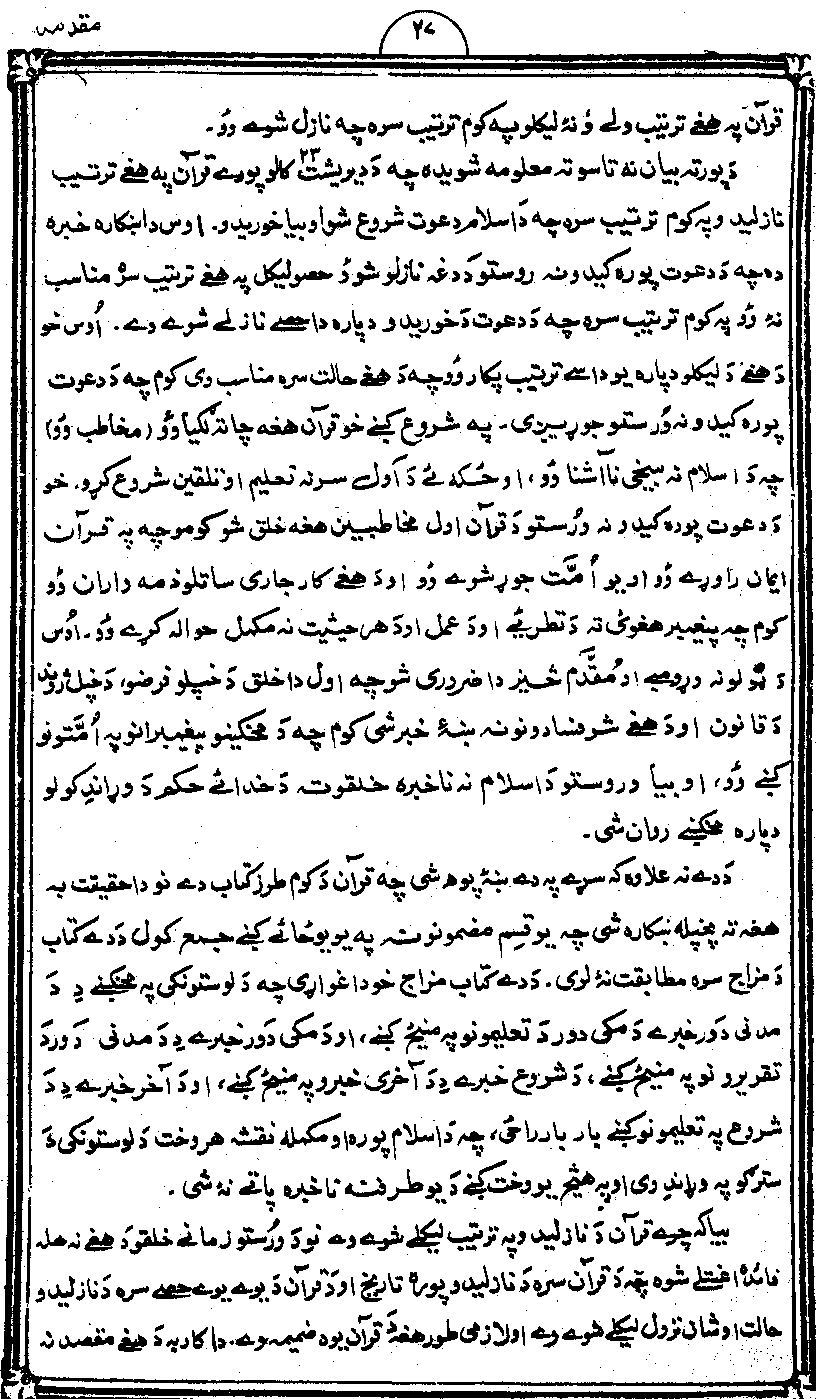 مقدمه
۲۷
قرآن په هغے ترتیب ولے ؤ نۀ لیکلو په کوم ترتیب سره چه نازل شوے ؤو۔
دَ پورته بیان نه تاسو ته معلومه شویده چه دَ دیریشت ۲۳ کالو پورے قرآن په هغے ترتیب
نازلیدو په کوم ترتیب سره چه دَ اسلام دعوت شروع شو او بیا خوریدو. اوس دا ښکاره خبره
ده چه دَ دعوت پوره کیدو نه روستو دَ دغه نازلو شوؤ حصو لیکل په هغے ترتیب سره مناسب
نۀ ؤو په کوم ترتیب سره چه دَ دعوت دَ خوریدو دپاره دا حصے نازلے شوے دے. اُوس خو
دَ هغے دَ لیکلو دپاره یو داسے ترتیب پکار ؤو چه دَ هغے حالت سره مناسب وی کوم چه دَ دعوت
پوره کیدو نه ؤرستو جوړیږی۔ په شروع کښے خو قرآن هغه چا ته لګیا ؤو (مخاطب ؤو)
چه دَ اسلام نه بیخی ناآشنا ؤو، او ځکه ئے دَ اول سر نه تعلیم او تلقین شروع کړو. خو
دَ دعوت پوره کیدو نه ورُستو دَ قرآن اول مخاطبین هغه خلق شو کومو چه په قرآن
ایمان راوړے ؤو او یو اُمَّت جوړ شوے ؤو او دَ هغے کار جاری ساتلو ذمه داران ؤو
کوم چه پیغمبر هغوئ ته دَ نظریے او دَ عمل او دَ هر حیثیت نه مکمل حواله کړے ؤو۔ اُوس
دَ ټولو نه وړومبے او مُقدَّم څیز دا ضروری شو چه اول دا خلق دَ خپلو فرضو، دَ خپل ژوند
دَ قانون او دَ هغے شر فسادونو نه ښۀ خبر شی کوم چه دَ مخکینو پیغمبرانو په اُمَّتونو
کښے ؤو، او بیا وروستو دَ اسلام نه ناخبره خلقو ته دَ خدائے حکم دَ وړاندِ کولو
دپاره مخکښے روان شی۔
دَ دے نه علاوه که سړے په دے ښۀ پوهه شی چه قرآن دَ کوم طرز کتاب دے نو دا حقیقت به
هغه ته پخپله ښکاره شی چه یو قسم مضمونونه په یو یو ځائے کښے جمع کول دَ دے کتاب
دَ مزاج سره مطابقت نۀ لری. دَ دے کتاب مزاج خو دا غواړی چه دَ لوستونکی په مخکښے دِ دَ
مدنی دَور خبرے دَ مکی دور دَ تعلیمونو په منیځ کښے، او دَ مکی دَور خبرے دِ دَ مدنی دَور دَ
تقریرونو په منیځ کښے، دَ شروع خبرے دِ دَ آخری خبرو په منیځ کښے، او دَ آخر خبرے دِ دَ
شروع په تعلیمونو کښے بار بار راځی، چه دَ اسلام پوره او مکمله نقشه هر وخت دَ لوستونکی دَ
سترګو په وړاندِ وی او په هیڅ یو وخت کښے دَ یو طرف نه ناخبره پاتے نۀ شی.
بیا که چرے قرآن دَ نازلیدو په ترتیب لیکلے شوے وے نو دَ ورُستو زمانے خلقو دَ هغے نه هله
فائده اخستلے شوه چه دَ قرآن سره دَ نازلیدو پوره تاریخ او دَ قرآن دَ یوے یوے حصے سره دَ نازلیدو
حالت او شان نزول لیکلے شوے وے او لازمی طور هغه دَ قرآن یوه ضمیمه وے. دا کار به دَ هغے مقصد نه